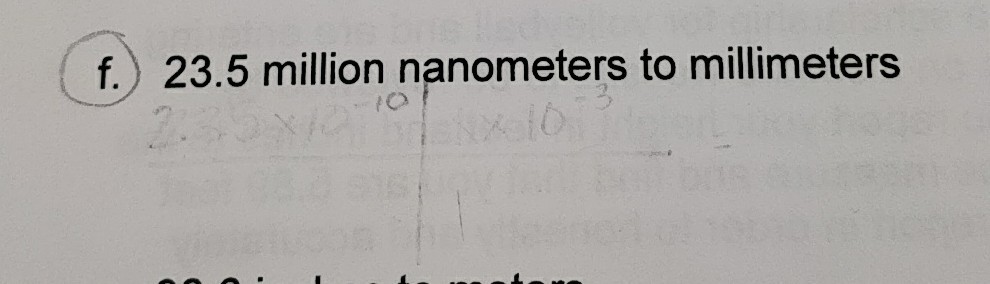 f. 23.5 million nanometers to millimeters
2.35×10⁻¹⁰ | 1×10⁻³
1